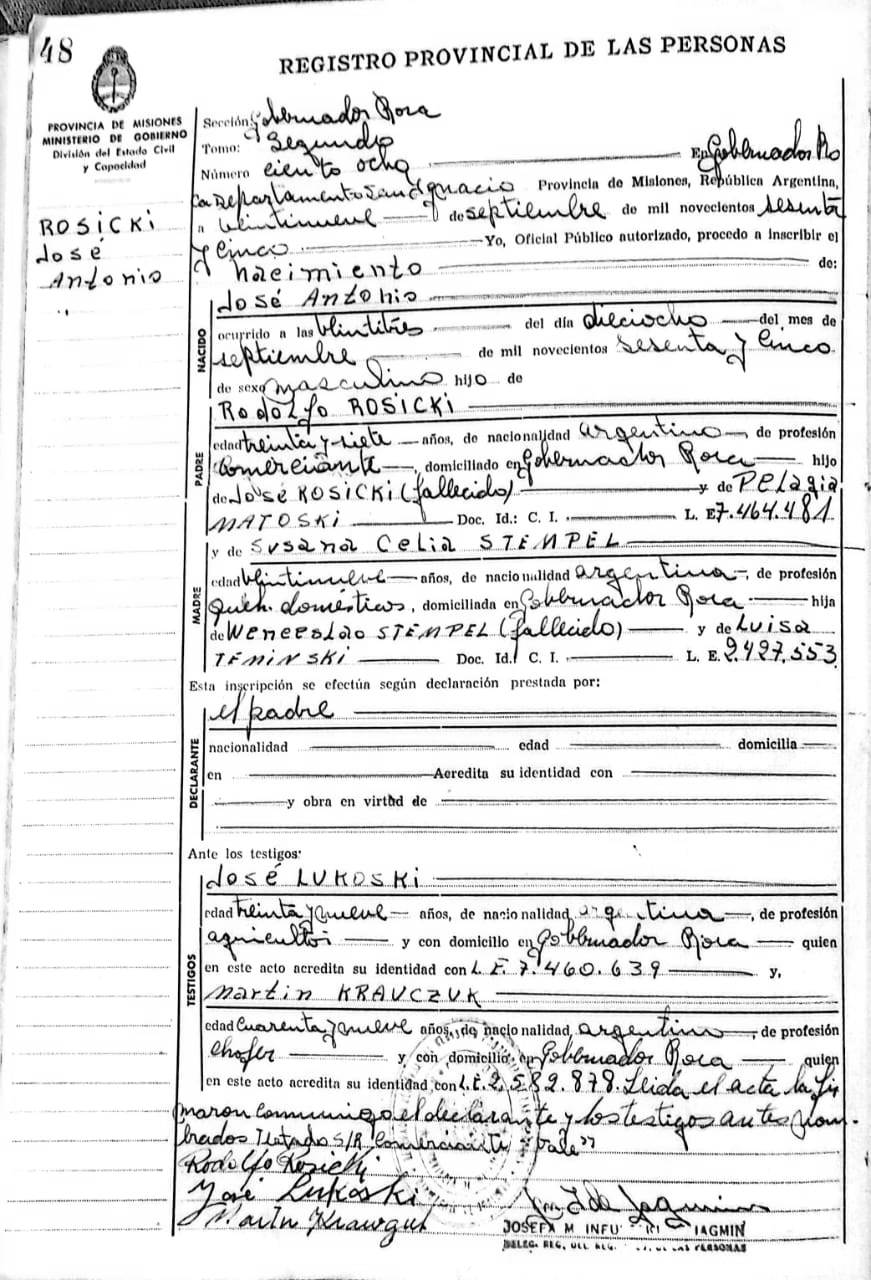 48
REGISTRO PROVINCIAL DE LAS PERSONAS
PROVINCIA DE MISIONES
MINISTERIO DE GOBIERNO
División del Estado Civil
y Capacidad
ROSICKI
José
Antonio
Sección Gobernador Roca
Tomo: Segundo
Número ciento ocho En Gobernador Ro
ca Departamento San Ignacio Provincia de Misiones, República Argentina,
a veintinueve de septiembre de mil novecientos sesenta
y cinco Yo, Oficial Público autorizado, procedo a inscribir el
nacimiento de:
NACIDO
José Antonio
ocurrido a las veintitres del día dieciocho del mes de
septiembre de mil novecientos sesenta y cinco
de sexo masculino hijo de
Rodolfo ROSICKI
PADRE
edad treinta y siete años, de nacionalidad argentino, de profesión
comerciante, domiciliado en Gobernador Roca hijo
de José ROSICKI (fallecido) y de Pelagia
MATOSKI Doc. Id.: C. I. L. E 7.464.481
y de Susana Celia STEMPEL
MADRE
edad veintinueve años, de nacionalidad argentina, de profesión
queh. domésticos, domiciliada en Gobernador Roca hija
de Wenceslao STEMPEL (fallecido) y de Luisa
TEMINSKI Doc. Id. C. I. L. E. 2.427.553
Esta inscripción se efectúa según declaración prestada por:
DECLARANTE
el padre
nacionalidad edad domicilia
en Acredita su identidad con
y obra en virtud de
Ante los testigos:
TESTIGOS
José LUKOSKI
edad treinta y nueve años, de nacionalidad argentina, de profesión
agricultor y con domicilio en Gobernador Roca quien
en este acto acredita su identidad con L. E. 7.460.639 y,
Martin KRAVCZUK
edad cuarenta y nueve años, de nacionalidad argentino, de profesión
chofer y con domicilio en Gobernador Roca quien
en este acto acredita su identidad con L.E. 2.582.878. Leída el acta la fir
maron conmigo el declarante y los testigos antes nom-
brados Testado S/R "comerciante" vale"
Rodolfo Rosicki
José Lukoski
Martin
JOSEFA M IAGMIN
DELEG. REG. DE LAS PERSONAS